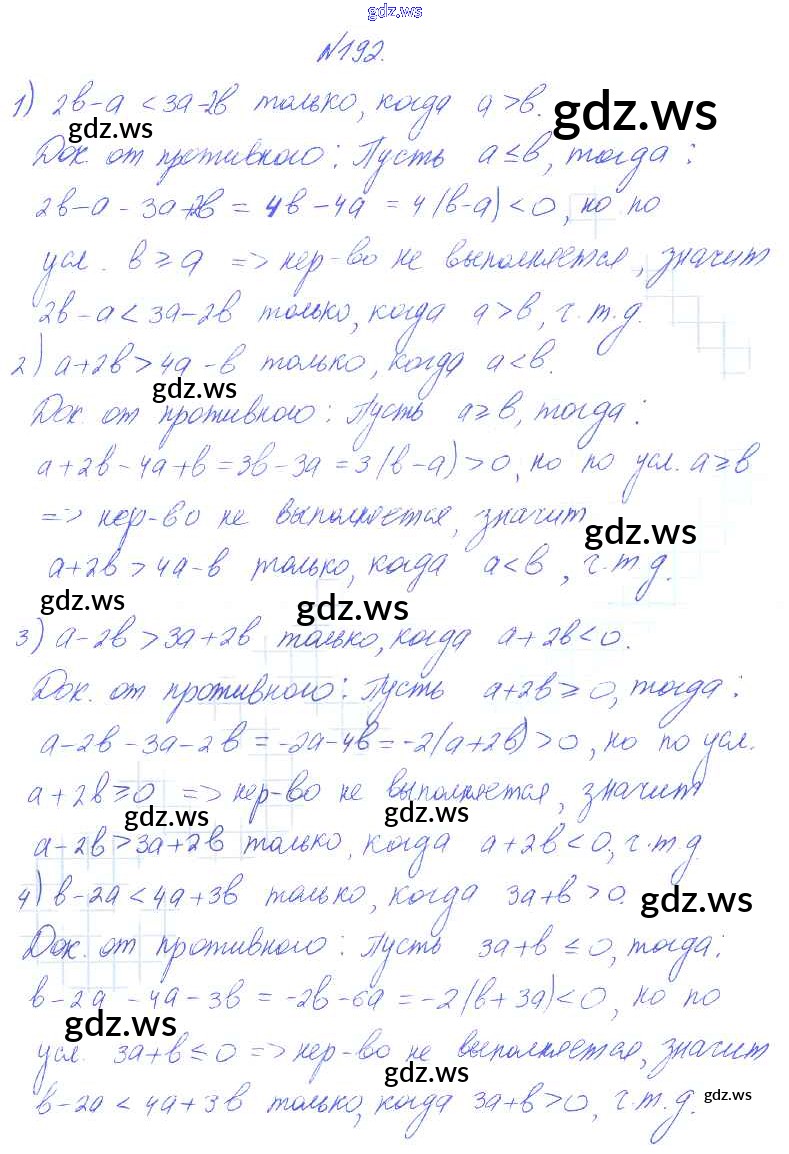 gdz.ws
№192.
1) 2b-a < 3a-2b только, когда a>b.
gdz.ws
gdz.ws
Док. от противного: Пусть a≤b, тогда:
2b-a-3a+2b = 4b-4a = 4(b-a)<0, но по
усл. b≥a => нер-во не выполняется, значит
2b-a<3a-2b только, когда a>b, ч.т.д.
2) a+2b>4a-b только, когда a<b.
gdz.ws
Док. от противного: Пусть a≥b, тогда:
a+2b-4a+b=3b-3a=3(b-a)>0, но по усл. a≥b
=> нер-во не выполняется, значит
gdz.ws
a+2b>4a-b только, когда a<b, ч.т.д.
gdz.ws
gdz.ws
3) a-2b>3a+2b только, когда a+2b<0.
Док. от противного: Пусть a+2b≥0, тогда:
a-2b-3a-2b=-2a-4b=-2(a+2b)>0, но по усл.
a+2b≥0 => нер-во не выполняется, значит
gdz.ws
gdz.ws
a-2b>3a+2b только, когда a+2b<0, ч.т.д.
4) b-2a<4a+3b только, когда 3a+b>0.
gdz.ws
Док. от противного: Пусть 3a+b≤0, тогда:
b-2a-4a-3b=-2b-6a=-2(b+3a)<0, но по
gdz.ws
усл. 3a+b≤0 => нер-во не выполняется, значит
gdz.ws
b-2a<4a+3b только, когда 3a+b>0, ч.т.д.
gdz.ws